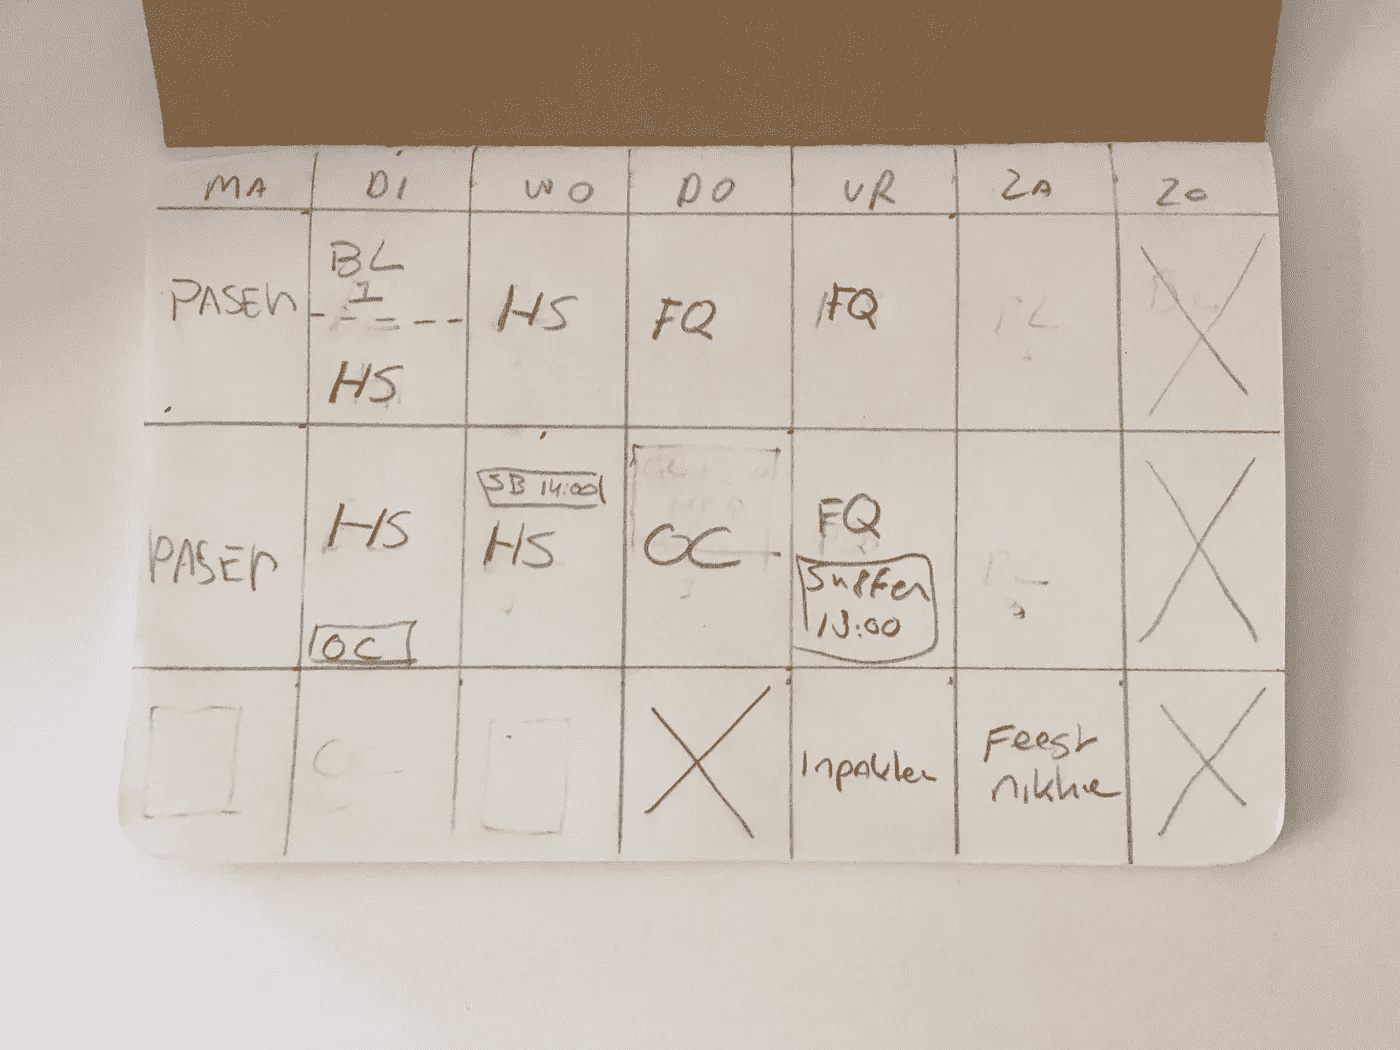 MA DI WO DO VR ZA ZO
PASEN
BL
1
HS
HS
FQ
FQ
PASEN
HS
OC
SB 14:00
HS
OC
FQ
Surfen
13:00
Inpakken
Feest
nikkie